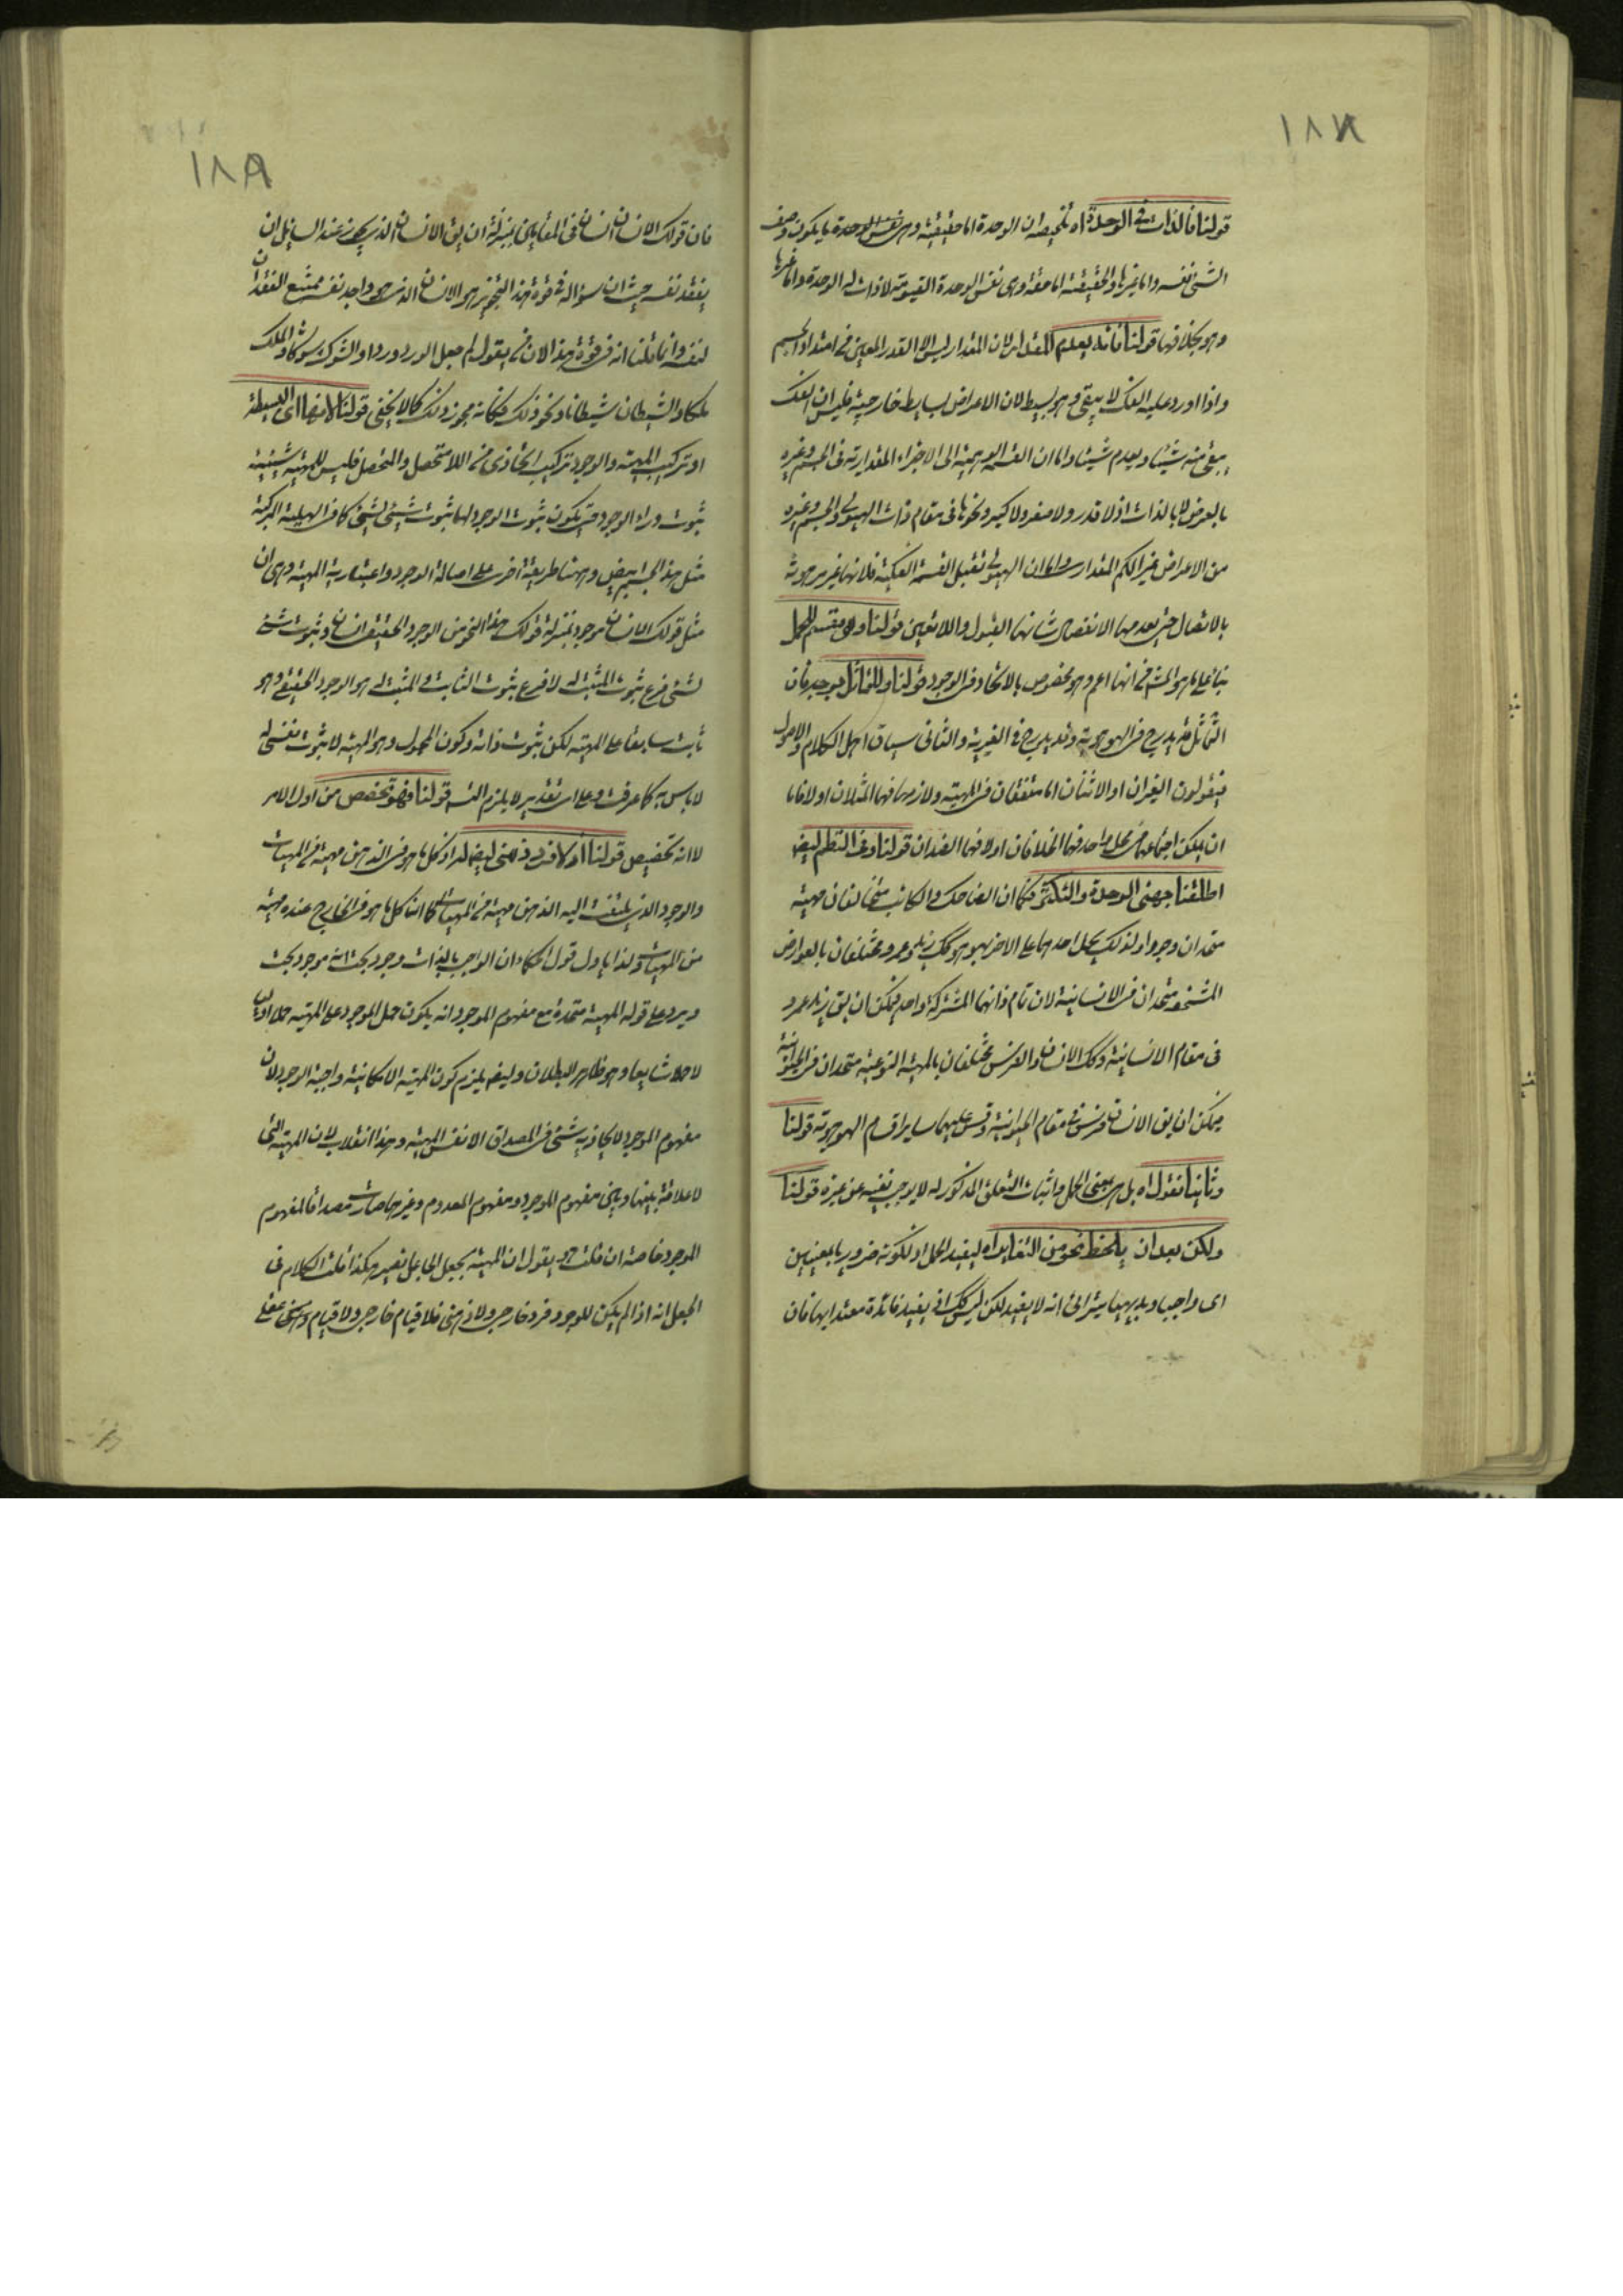 ١٨٨
قولنا فالذات في الوحدة اه تلخيصه ان الوحدة اما حقيقية وهي نفس الوحدة ما يكون وصف
الشئ نفسه واما غيرها والحقيقية اما حقة وهي نفس الوحدة القيومية لا ذات له الوحدة واما غيرها
وهو بخلافها قولنا فانه يعدم المقدار لان المقدار ليس الا القدر المعين في امتداد الجسم
واذا اورد عليه الفك لا يبقى وهو بسيط لان الاعراض بسايط خارجية فليس ان الفك
يبقى منه شيئا ويعدم شيئا واما ان القسمة الوهمية الى الاجزاء المقدارية في الجسم وغيره
بالعرض لا بالذات اذ لا قدر ولا صغر ولا كبر ونحوها في مقام ذات الهيولى والجسم وغيره
من الاعراض غير الكم المقدارى واما ان الهيولى تقبل القسمة الفكية فلانها غير مرهونة
بالاتصال حتى يعدمها الانفصال شانها القبول واللاتعين قولنا وهى مقسم للحمل
بناء على ما هو المش‍ في انها اعم وهو مخصوص بالاتحاد في الوجود قولنا والتماثل بوجه فان
التماثل قد يدرج في الهوهوية وقد يدرج في الغيرية والثانى سياق اهل الكلام والاصول
فيقولون الغيران او الاثنان اما متفقان في المهية ولازمها فهما المثلان او لا فاما
ان يمكن اجتماعهما في محل واحد فهما الخلافان او لا فهما الضدان قولنا وفي النظم ايض
اطلقنا جهتى الوحدة والتكثر فكما ان الضاحك والكاتب متخالفان مهية
متحدان وجودا ولذلك يحمل احدهما على الاخر بهو هو كك زيد وعمرو مختلفان بالعوارض
المشخصة متحدان في الانسانية لان تام ذاتهما المشتركة واحد فيمكن ان يق زيد عمرو
في مقام الانسانية وكك الانسان والفرس مختلفان بالمهية النوعية متحدان في الحيوانية
فيمكن ان يق الانسان فرس في مقام الحيوانية وقس عليهما ساير اقسام الهوهوية قولنا
وثانيا نقول اه بل هي بمعنى الحمل واثبات التعلق المذكور له لا يوجب نفيه عن غيره قولنا
ولكن بعد ان يلحظ نحو من التغاير اه ليفيد الحمل اذ لكونه ضروريا بمعنيين
اى واجبا وبديهيا يترائى انه لا يفيد لكن ليس كك اذ يفيد فائدة معتدا بها فان
١٨٩
فان قولك الانسان انسان في المقامين بمنزلة ان يق الانسان الذى يجوز عند السايل ان
يفقد نفسه حيث ان سؤاله في قوة هذا التجويز هو الانسان الذى هو واجد نفسه ممتنع الفقدان
لنفسه وانما قلنا انه في قوة هذا لانه يقول لم جعل الورد وردا والشوك شوكا والملك
ملكا والشيطان شيطانا ونحو ذلك فكانه مجوز ذلك كما لا يخفى قولنا لانها اى البسيطة
او تركيب المهية والوجود تركيب اتحادى في اللامتحصل والتحصل فليس للمهية شيئية
ثبوت وراء الوجود حتى يكون ثبوت الوجود لها ثبوت شئ لشئ كما في الهلية المركبة
مثل هذا الجسم ابيض وههنا طريقة اخرى على اصالة الوجود واعتبارية المهية وهى ان
مثل قولك الانسان موجود بمنزلة قولك هذا النحو من الوجود الحقيقى انسان وثبوت شئ
لشئ فرع ثبوت المثبت له لا فرع ثبوت الثابت والمثبت له هو الوجود الحقيقى وهو
ثابت سابقا على المهية لكن بثبوت ذاته وكون المحمول وهو المهية لا ثبوت نفسى له
لا باس به كما عرفت وعلى اى تقدير لا يلزم التس‍ قولنا فهو تخصص من اول الامر
لا انه تخصيص قولنا او كافراد ذهنى ايض له اذ كل ما هو في الذهن مهية من المهيات
والوجود الذى يلتفت اليه الذهن مهية من المهيات كما ان كل ما هو في الخارج عنده مهية
من المهيات ولذا ياول قول الحكماء ان الواجب بالذات وجود بحت انه موجود بحت
ويرد على قوله المهية متحدة مع مفهوم الموجود انه يكون حمل الموجود على المهية حملا اوليا
لا حملا شايعا وهو ظاهر البطلان وايض يلزم كون المهية الامكانية واجبة الوجود لان
مفهوم الموجود لا يحاذيه شئ في المصداق الا نفس المهية وهذا انقلاب لان المهية التى
لا علاقة بينها وبين مفهوم الموجود ومفهوم المعدوم وغيرهما صارت مصداقا لمفهوم
الموجود خاصة ان قلت هو يقول ان المهية بجعل الجاعل تصير هكذا قلت الكلام في
الجعل انه اذا لم يكن للوجود فرد خارجى ولا ذهنى فلا قيام خارجى ولا قيام ذهنى عقلى